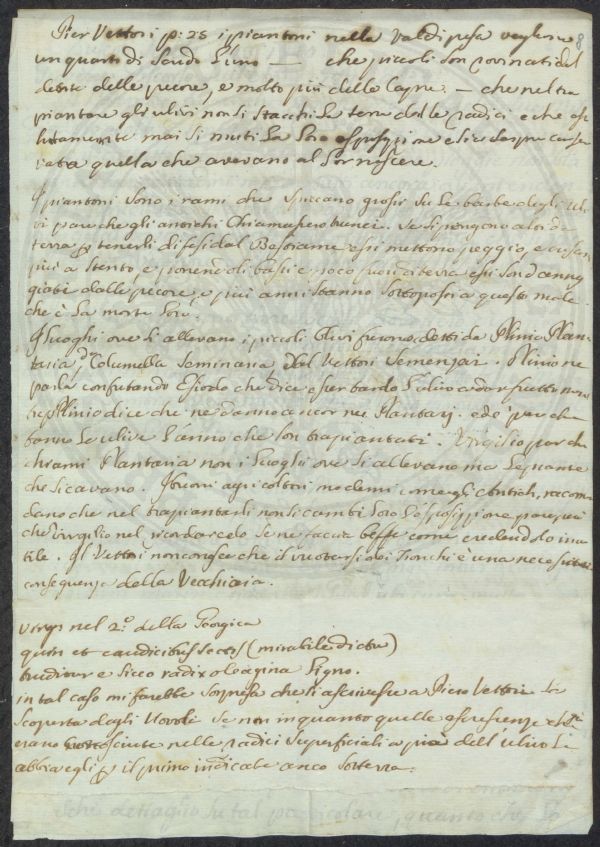 Pier Vettori p: 25 i piantoni nella Valdipesa vagliono 8
un quarto di Scudo l'uno — che piccoli son rovinati dal
dente delle pecore, e molto più delle Capre. — che nel tra
piantare gli ulivi non si stacchi la terra dalle radici e che
mai si muti la loro esposizione e sia sempre
quella che avevano al
I piantoni sono i rami che spiccano grossi su le barbe degli uli
vi pare che gli antichi chiamassero trunci. Se si pongono
terra p tenerli difesi dal Bestiame essi mettono peggio, e
più a stento, e ponendoli bassi e poco fuori di terra essi son danneg
giati dalle pecore, e più anni stanno sottoposti a questo male
che è la morte loro.
I luoghi ove si allevano i piccoli Ulivi furono detti da Plinio Plan-
taria, da Columella Seminaria, dal Vettori Semenzai. Plinio ne
parla confutando Esiodo che dice esser tardo l'ulivo a dar frutti
Plinio dice che ne danno ancor nei Plantarj. ed è per che
fanno le ulive l'anno che son trapiantati. Virgilio par che
chiami Plantaria non i luoghi ove si allevano ma le piante
che si cavano. I buoni agricoltori moderni come gli Antichi, racoman
dano che nel trapiantarli non si cambi loro l'esposizione pare però
che Virgilio nel ricordarcelo se ne faccia beffe come credendolo inu
tile. Il Vettori non conosce che il vuotarsi dei Tronchi è una necessaria
conseguenza della Vecchiaia.
Virg nel 2.º della Georgica
quin et caudicibus sectis (mirabile dictu)
truditur e sicco radix oleagina ligno.
in tal caso mi farebbe sorpresa che si ascrivesse a Piero Vettori la
scoperta degli Uovoli se non in quanto quelle escrescenze
erano conosciute nelle radici superficiali a piè dell'ulivo le
abbia egli p il primo indicate anco sotterra.